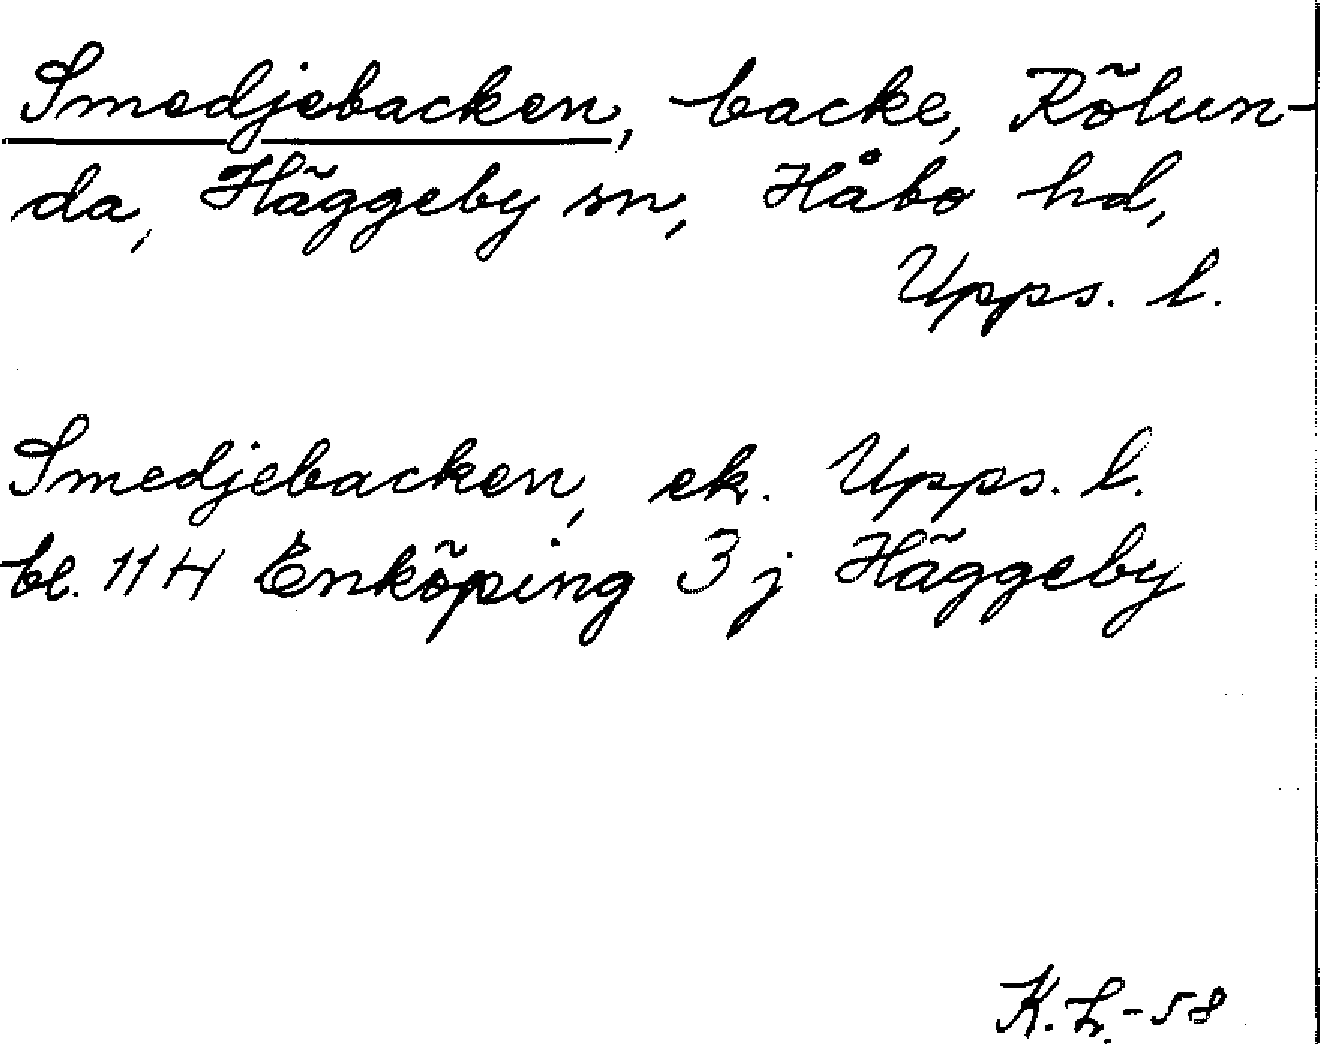 Smedjebacken, backe, Rölun-
da, Häggeby sn, Håbo hd,
Upps. l.
Smedjebacken, ek. Upps. l.
bl. 114 Enköping 3 j Häggeby
K. L. -58